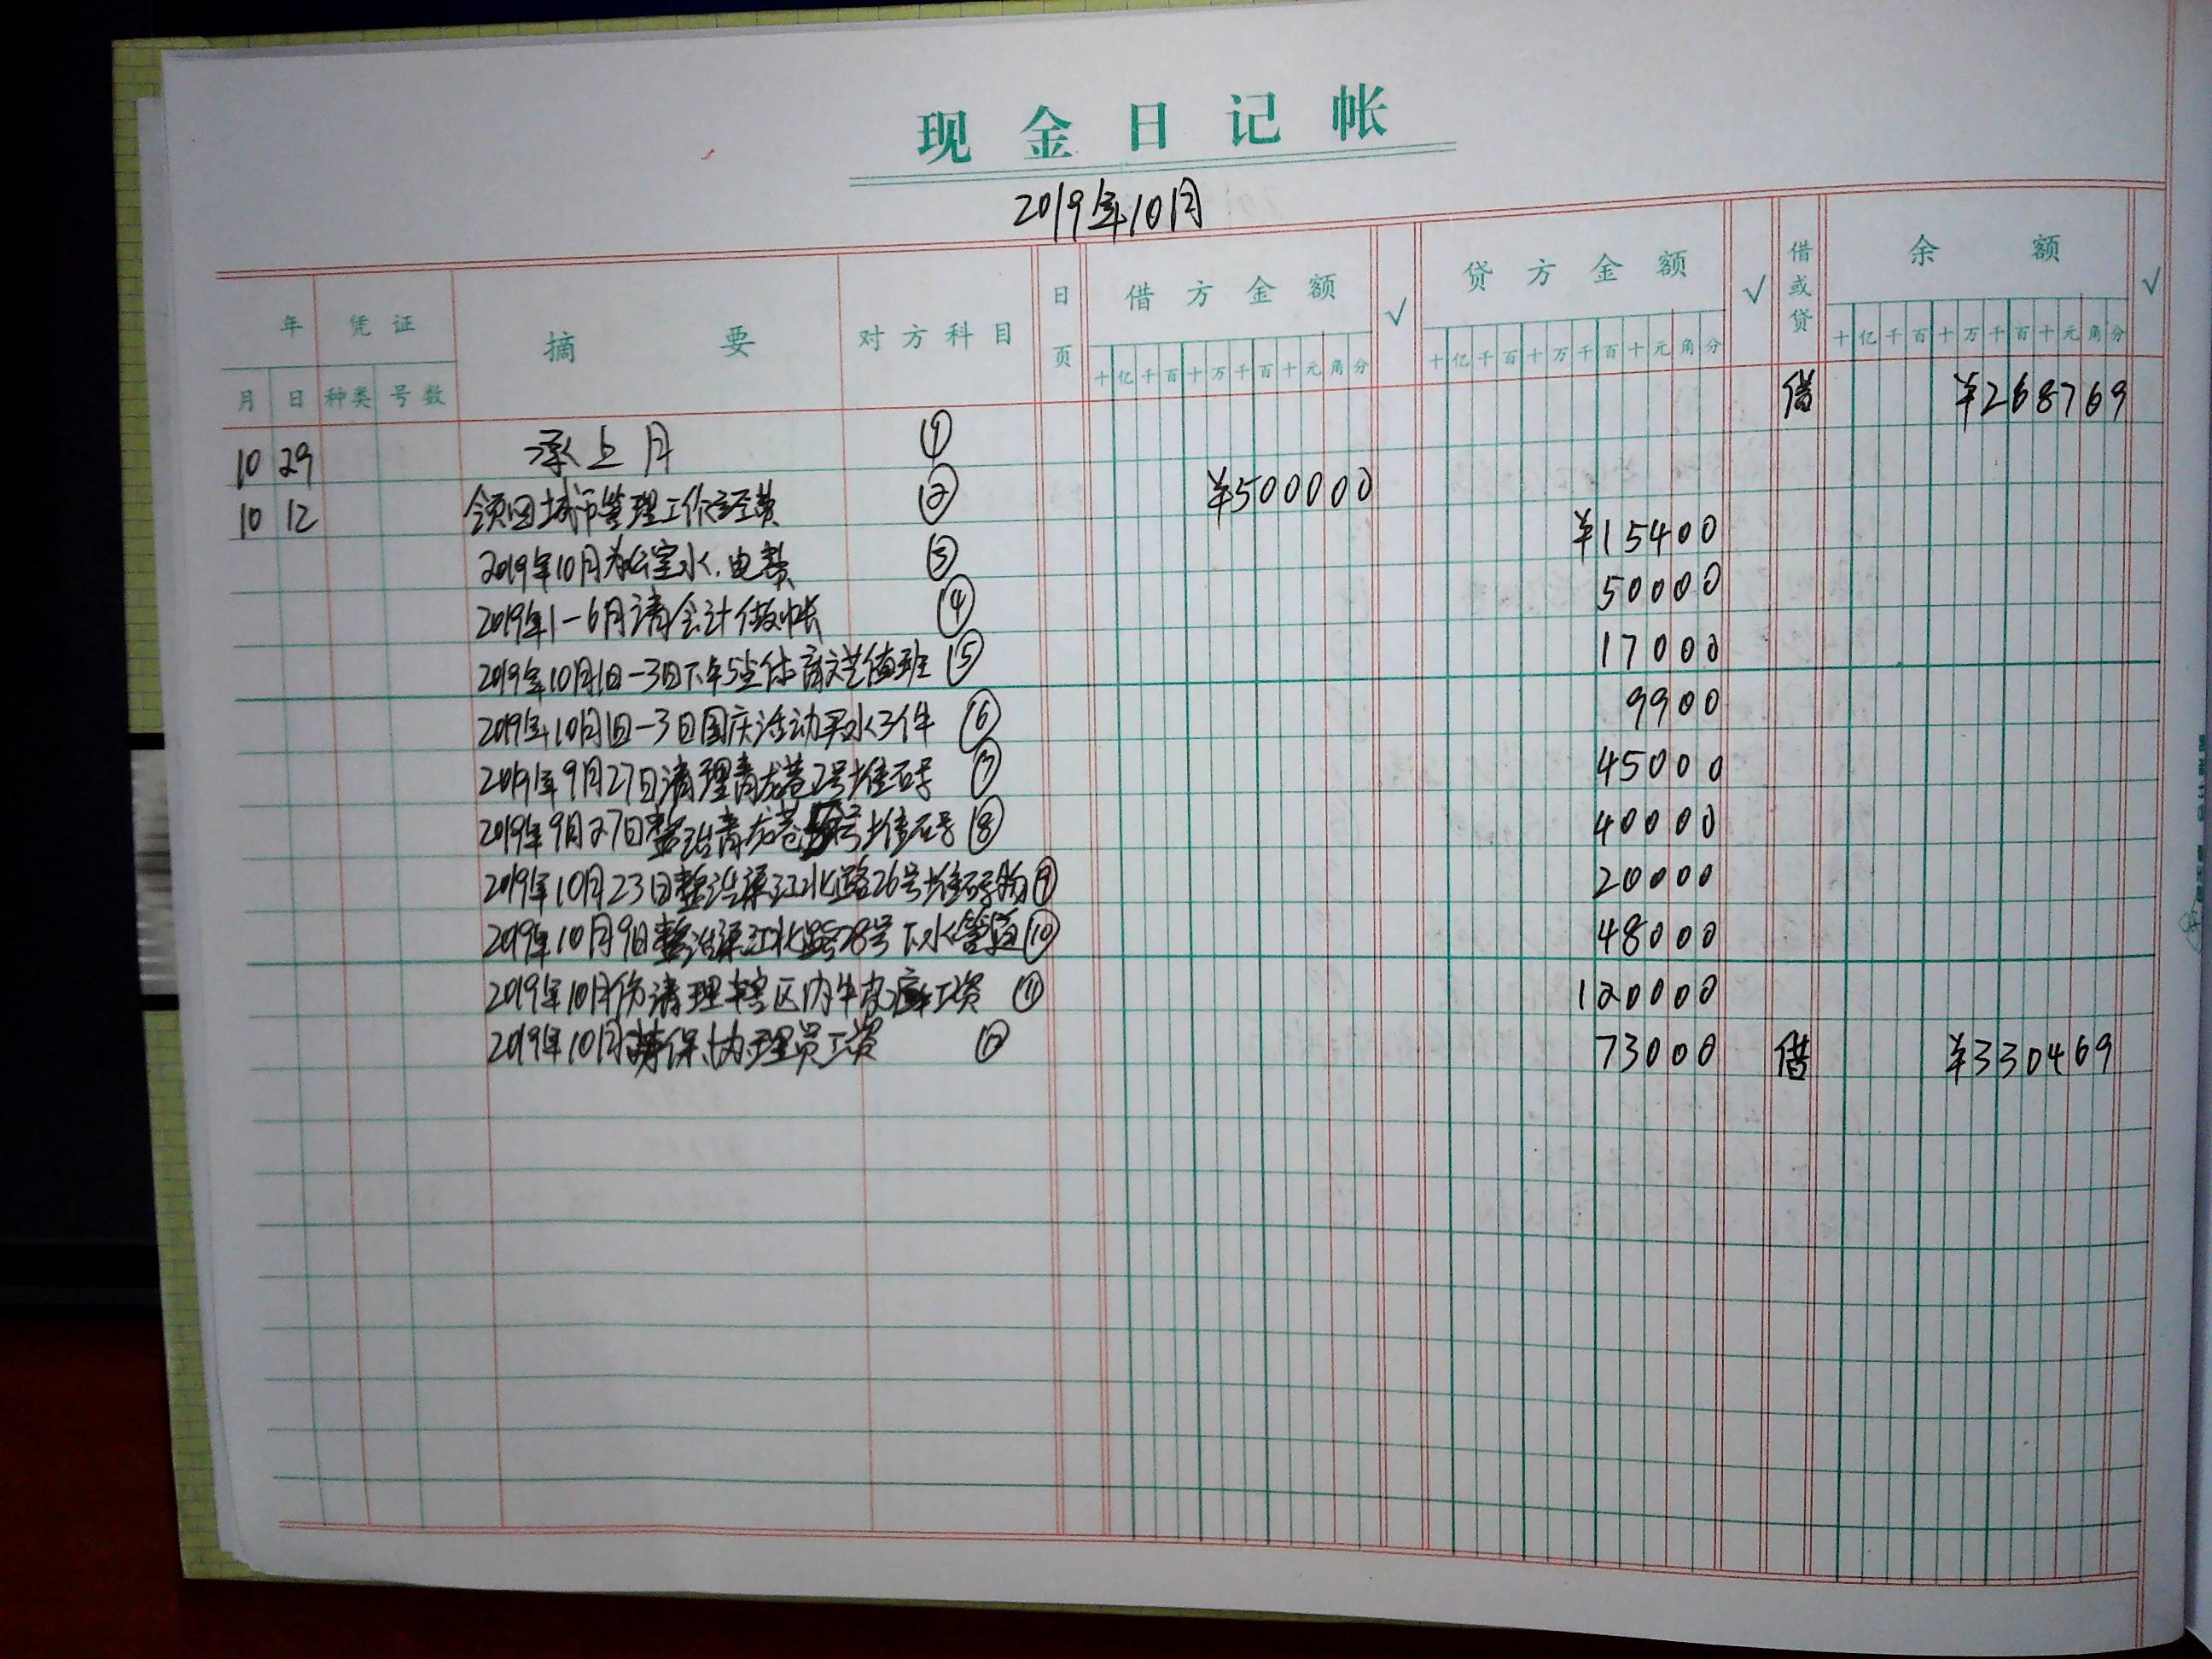 现金日记帐
2019年10月
年 凭证 摘要 对方科目 日页 借方金额 √ 贷方金额 √ 借或贷 余额 √
月 日 种类 号数 十亿千百十万千百十元角分 十亿千百十万千百十元角分 十亿千百十万千百十元角分
10 29 承上月 ① 借 ¥268769
10 12 领回城市管理工作经费 ② ¥500000
2019年10月办公室水.电费 ③ ¥15400
2019年1-6月请会计做帐 ④ 50000
2019年10月1日-3日下午5点体育文艺值班 ⑤ 17000
2019年10月1日-3日国庆活动买水3件 ⑥ 9900
2019年9月27日清理青龙巷2号堆石号 ⑦ 45000
2019年9月27日整治青龙巷号堆石号 ⑧ 40000
2019年10月23日整治渠江北路26号堆物 ⑨ 20000
2019年10月9日整治渠江北路78号下水管道 ⑩ 48000
2019年10月份清理辖区内牛皮癣工资 ⑪ 120000
2019年10月保协理员工资 ⑫ 73000 借 ¥330469